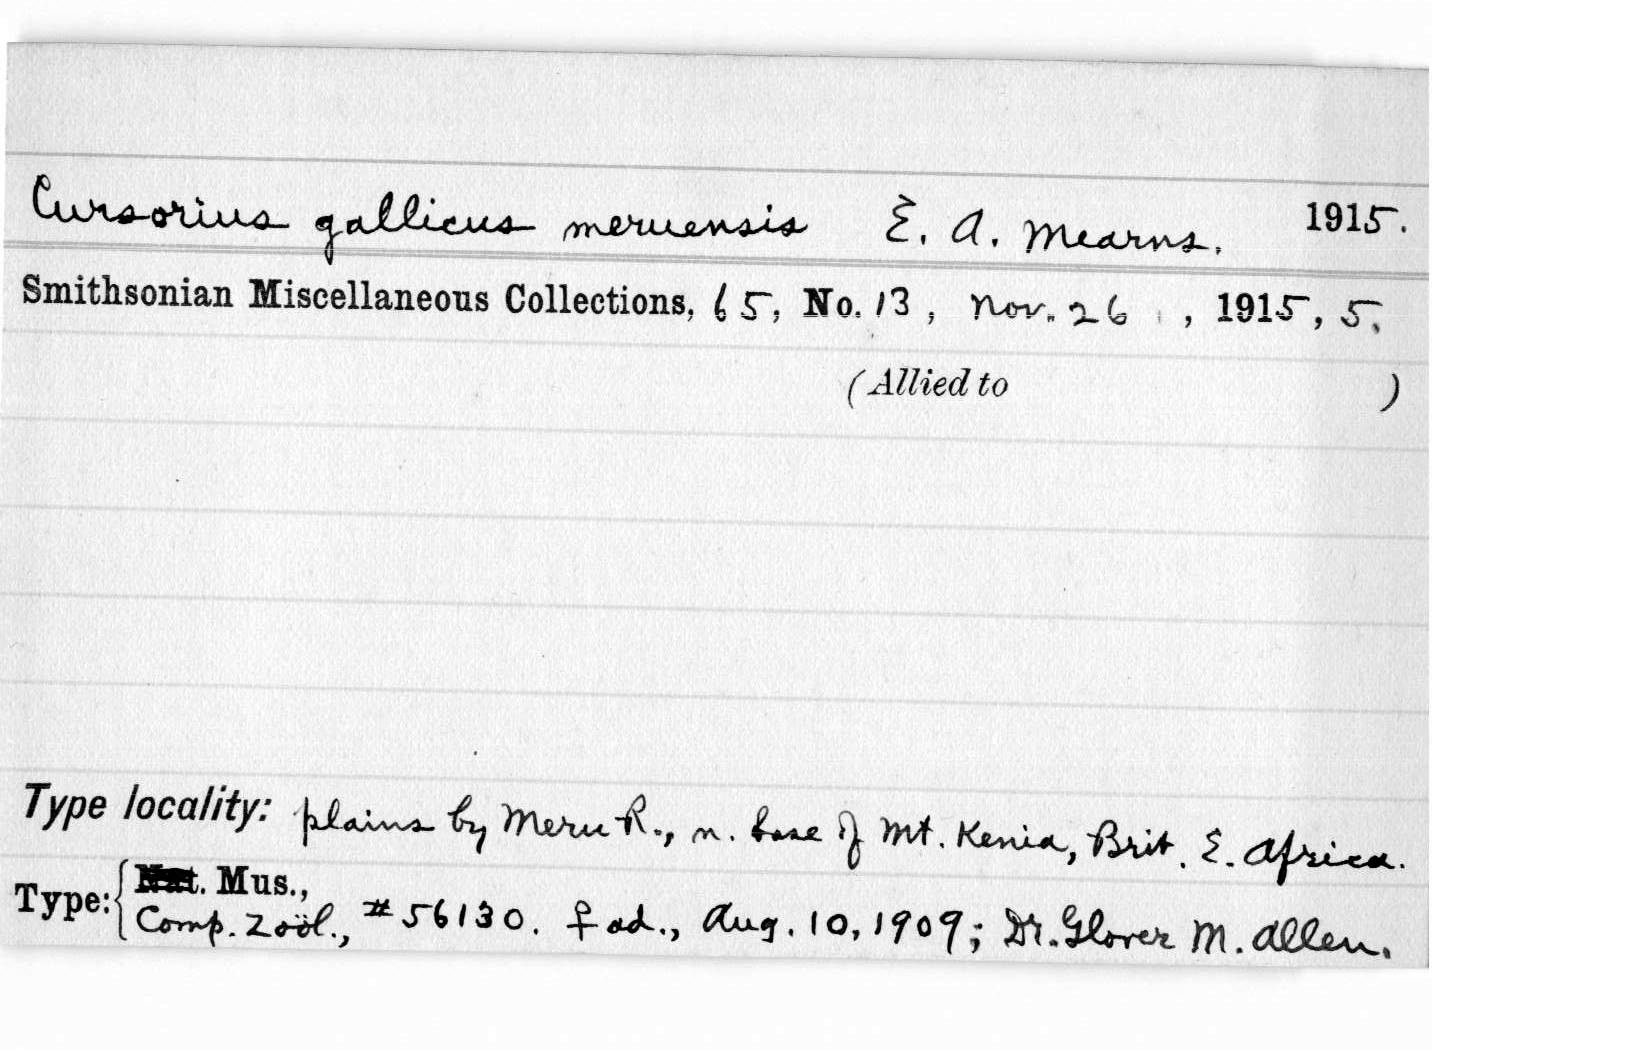 Cursorius gallicus meruensis E. A. Mearns. 1915.
Smithsonian Miscellaneous Collections, 65, No. 13, Nov. 26, 1915, 5.
(Allied to )
Type locality: plains by Meru R., n. base of Mt. Kenia, Brit. E. Africa.
Type: { Nat. Mus.,
Comp. Zoöl., #56130. ♀ ad., Aug. 10, 1909; Dr. Glover M. Allen.